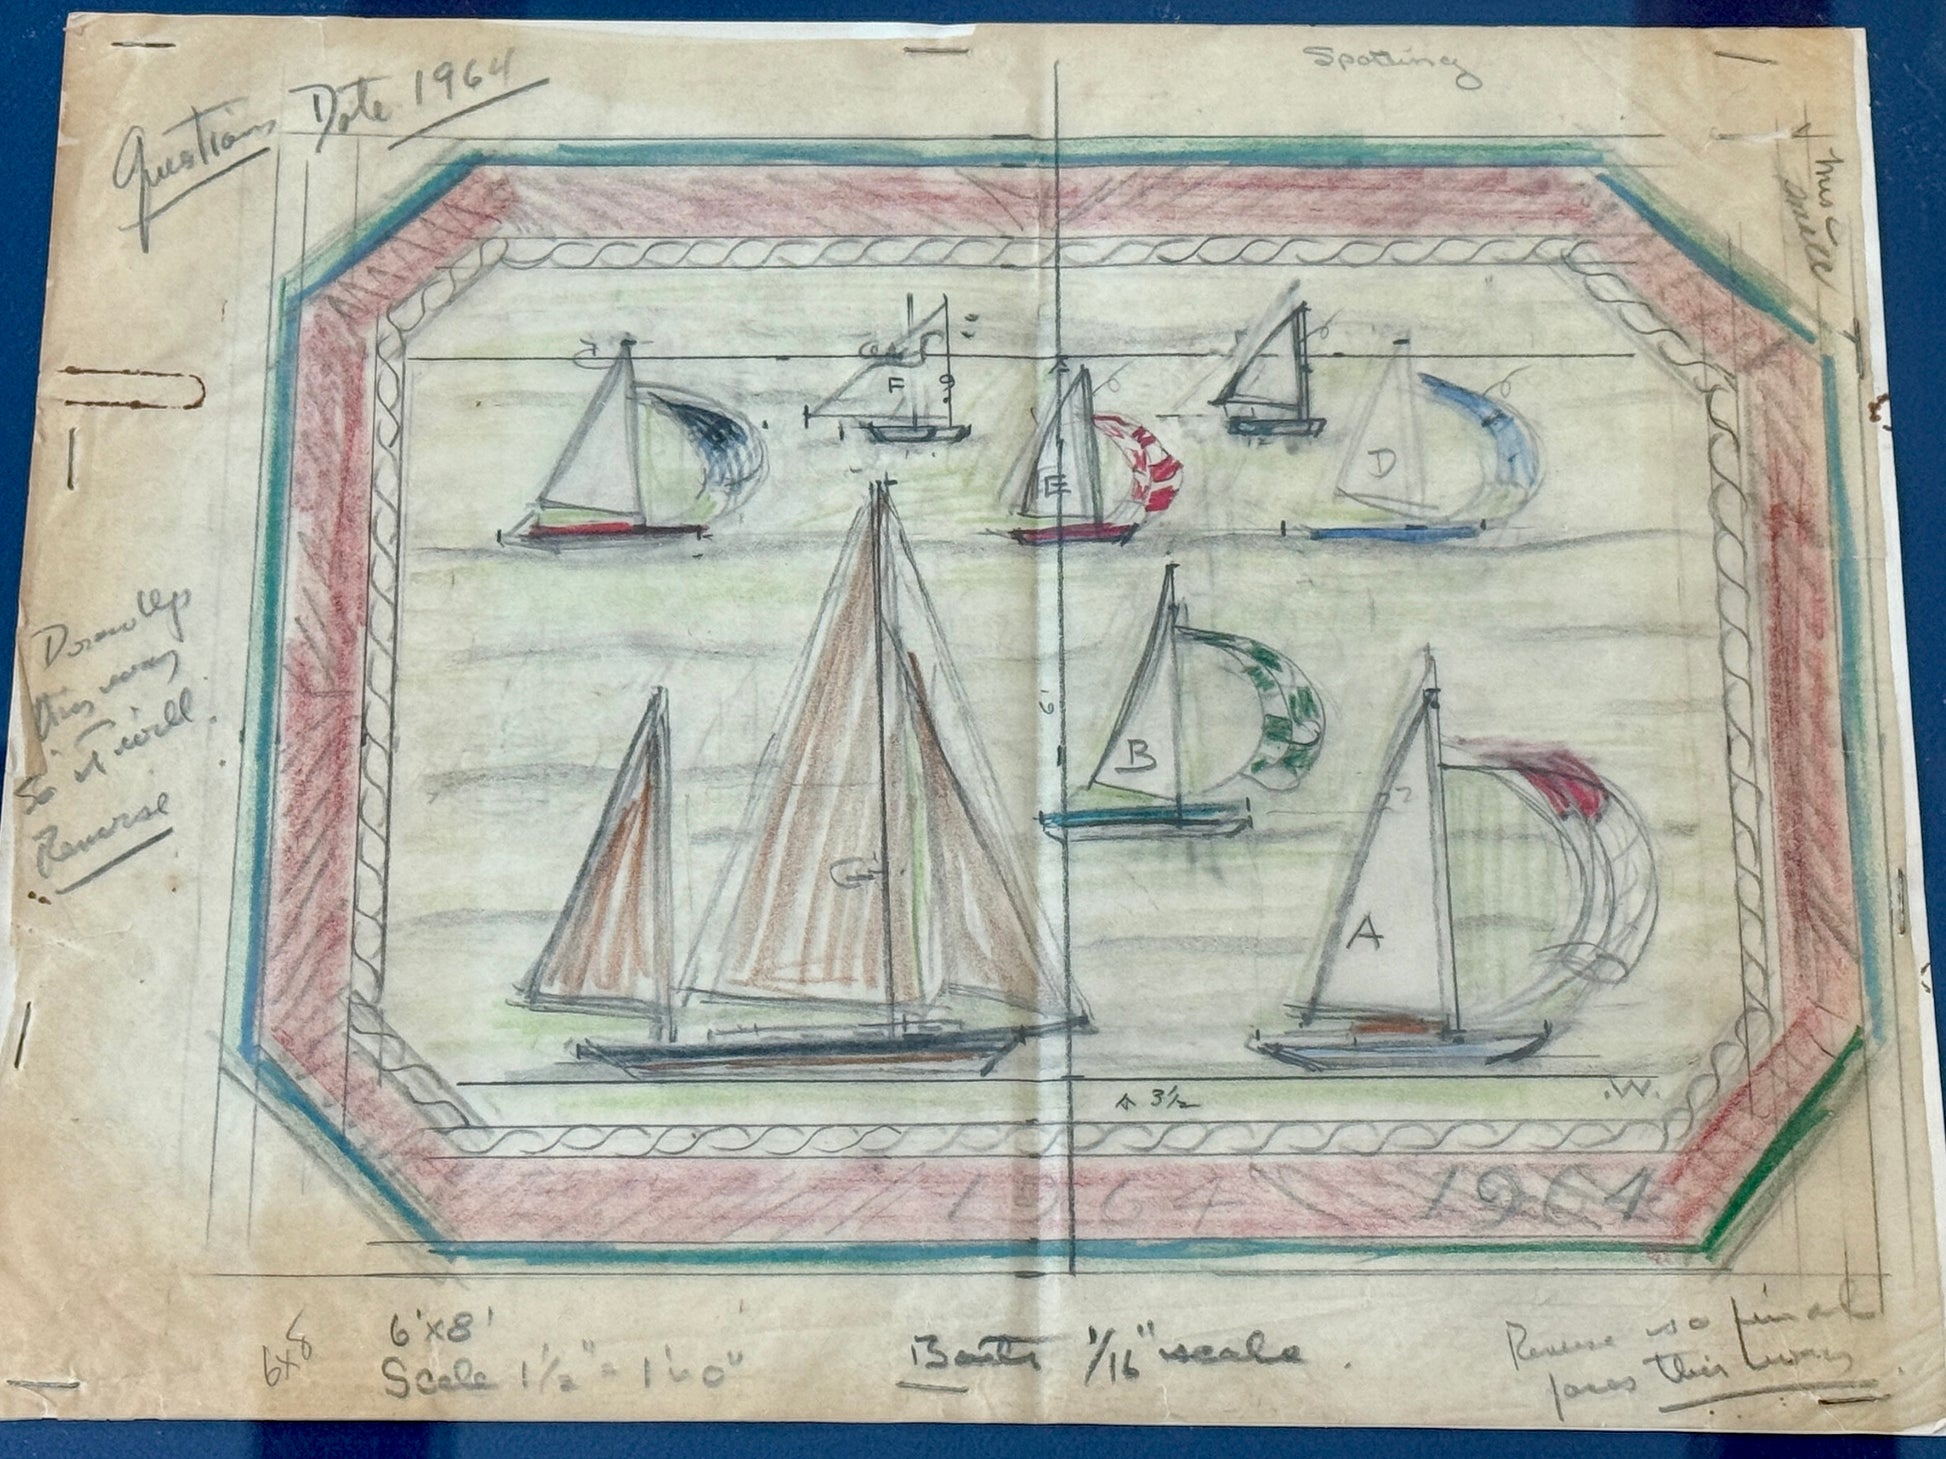 Question Date 1964
Spotting
F
E
D
B
G
A
6'
Draw Up
this way
so it will
Reverse
3½
.W.
1964
1964
6x8
6'x8'
Scale 1½" = 1'0"
Boats 1/16" scale.
Reverse so finish
faces this way